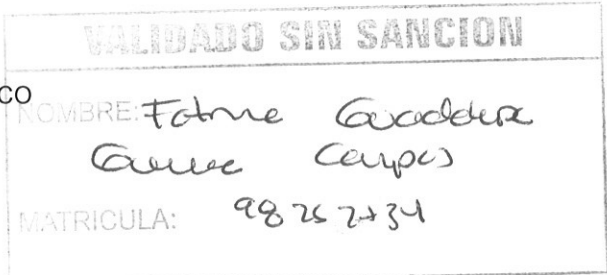 VALIDADO SIN SANCION
CO
NOMBRE: Fatme Guadalupe
Campos
MATRICULA: 98 25 2734